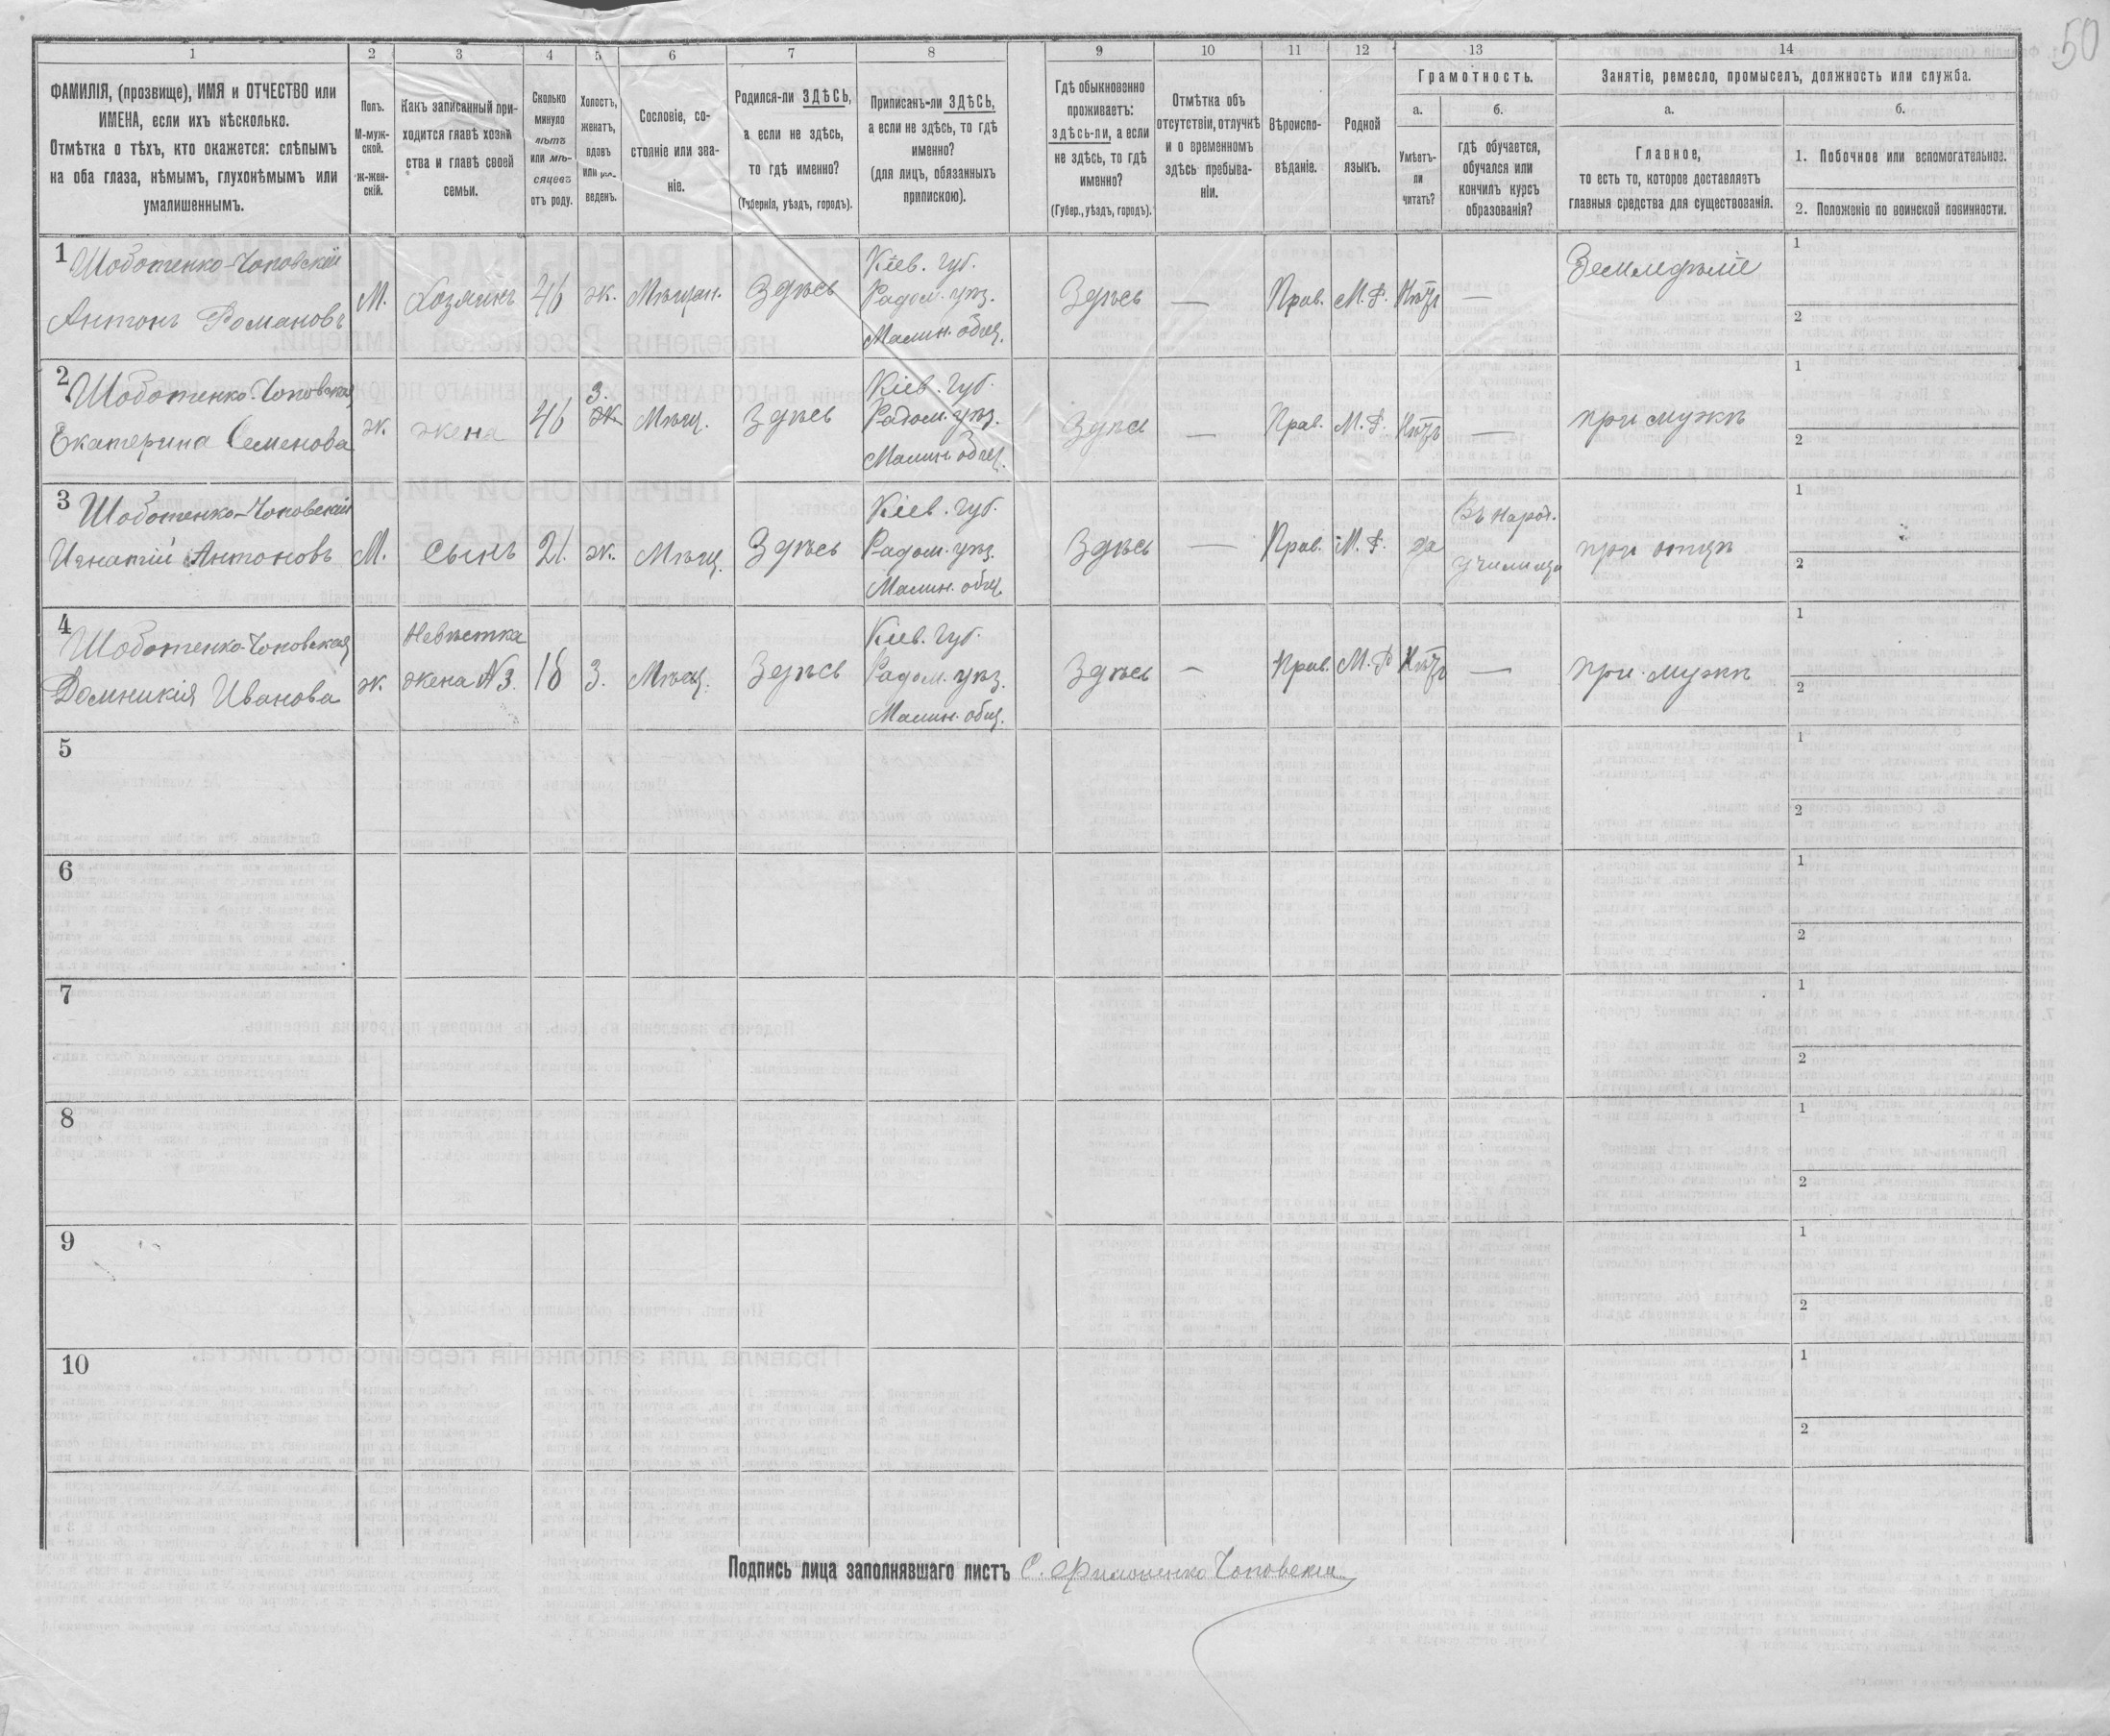 50
1 2 3 4 5 6 7 8 9 10 11 12 13 14
ФАМИЛІЯ, (прозвище), ИМЯ и ОТЧЕСТВО или
ИМЕНА, если ихъ нѣсколько.
Отмѣтка о тѣхъ, кто окажется: слѣпымъ
на оба глаза, нѣмымъ, глухонѣмымъ или
умалишеннымъ.
Полъ.
М-муж-
ской.
ж-жен-
скій.
Какъ записанный при-
ходится главѣ хозяй
ства и главѣ своей
семьи.
Сколько
минуло
лѣтъ
или мѣ-
сяцевъ
отъ роду.
Холостъ,
женатъ,
вдовъ
или раз-
веденъ.
Сословіе, со-
стояніе или зва-
ніе.
Родился-ли ЗДѢСЬ,
а если не здѣсь,
то гдѣ именно?
(Губернія, уѣздъ, городъ).
Приписанъ-ли ЗДѢСЬ,
а если не здѣсь, то гдѣ
именно?
(для лицъ, обязанныхъ
припискою).
Гдѣ обыкновенно
проживаетъ:
здѣсь-ли, а если
не здѣсь, то гдѣ
именно?
(Губер., уѣздъ, городъ).
Отмѣтка объ
отсутствіи, отлучкѣ
и о временномъ
здѣсь пребыва-
ніи.
Вѣроиспо-
вѣданіе.
Родной
языкъ.
Грамотность.
а.
Умѣетъ-
ли
читать?
б.
гдѣ обучается,
обучался или
кончилъ курсъ
образованія?
Занятіе, ремесло, промыселъ, должность или служба.
а.
Главное,
то есть то, которое доставляетъ
главныя средства для существованія.
б.
1. Побочное или вспомогательное.
2. Положеніе по воинской повинности.
1 Шоботенко-Чоповскій
Антонъ Романовъ
М. Хозяинъ 46 ж. Мѣщан. Здѣсь
Кіев. Губ.
Радом. уѣз.
Малин. общ.
Здѣсь — Прав. М.Р. Нѣтъ — Земледѣліе
1
2
2 Шоботенко-Чоповская
Екатерина Семенова
ж. жена 46
З.
ж.
Мѣщ. Здѣсь
Кіев. Губ.
Радом. уѣз.
Малин. общ.
Здѣсь — Прав. М.Р. Нѣтъ — при мужѣ
1
2
3 Шоботенко-Чоповскій
Игнатій Антоновъ
М. Сынъ 21. ж. Мѣщ. Здѣсь
Кіев. Губ.
Радом. уѣз.
Малин. общ.
Здѣсь — Прав. М.Р. да
Въ народ.
училищѣ
при отцѣ
1
2
4 Шоботенко-Чоповская
Домникія Иванова
ж.
Невѣстка
жена №3.
18 З. Мѣщ. Здѣсь
Кіев. Губ.
Радом. уѣз.
Малин. общ.
Здѣсь — Прав. М.Р. Нѣтъ — при мужѣ
1
2
5
1
2
6
1
2
7
1
2
8
1
2
9
1
2
10
1
2
Подпись лица заполнявшаго листъ С. Филоненко Чоповскій